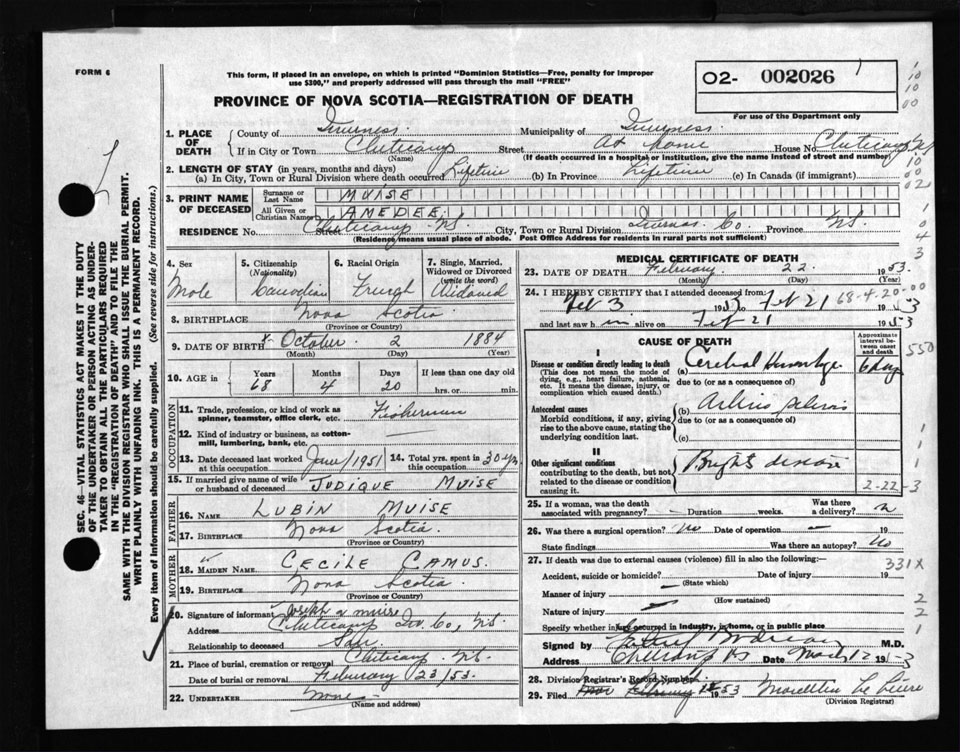 FORM 6
This form, if placed in an envelope, on which is printed "Dominion Statistics—Free, penalty for improper
use $300," and properly addressed will pass through the mail "FREE"
02- 002026
For use of the Department only
PROVINCE OF NOVA SCOTIA—REGISTRATION OF DEATH
1. PLACE OF DEATH
County of Inverness. Municipality of Inverness.
If in City or Town Cheticamp Street At home House No. Cheticamp NS
(Name) (If death occurred in a hospital or institution, give the name instead of street and number)
2. LENGTH OF STAY (in years, months and days)
(a) In City, Town or Rural Division where death occurred Lifetime (b) In Province Lifetime (c) In Canada (if immigrant)
3. PRINT NAME OF DECEASED
Surname or Last Name MUISE
All Given or Christian Names AMEDEE
RESIDENCE No. Street Cheticamp N.S. City, Town or Rural Division Inverness Co. Province N.S.
(Residence means usual place of abode. Post Office Address for residents in rural parts not sufficient)
4. Sex Male
5. Citizenship (Nationality) Canadian
6. Racial Origin French
7. Single, Married, Widowed or Divorced (write the word) Widowed
8. BIRTHPLACE Nova Scotia
(Province or Country)
9. DATE OF BIRTH October 2 1884
(Month) (Day) (Year)
10. AGE in Years 68 Months 4 Days 20 If less than one day old hrs. or min.
OCCUPATION
11. Trade, profession, or kind of work as spinner, teamster, office clerk, etc. Fisherman
12. Kind of industry or business, as cotton-mill, lumbering, bank, etc. —
13. Date deceased last worked at this occupation June/1951 14. Total yrs. spent in this occupation 30 yrs
15. If married give name of wife or husband of deceased JUDIQUE MUISE
FATHER
16. Name LUBIN MUISE
17. Birthplace Nova Scotia
(Province or Country)
MOTHER
18. MAIDEN NAME CECILE CAMUS.
19. BIRTHPLACE Nova Scotia.
(Province or Country)
20. Signature of informant muise
Address Cheticamp Inv. Co, N.S.
Relationship to deceased Son
21. Place of burial, cremation or removal Cheticamp N.S.
Date of burial or removal February 23/53.
22. UNDERTAKER None
(Name and address)
MEDICAL CERTIFICATE OF DEATH
23. DATE OF DEATH February 22 1953.
(Month) (Day) (Year)
24. I HEREBY CERTIFY that I attended deceased from:
Feb 3 1953 Feb 21 1953
68-4-20-00
and last saw him alive on Feb 21 1953
CAUSE OF DEATH
Approximate interval between onset and death
I
Disease or condition directly leading to death
(This does not mean the mode of dying, e.g., heart failure, asthenia, etc. It means the disease, injury, or complication which caused death.)
(a) Cerebral Hemorrhage 6 days
due to (or as a consequence of)
Antecedent causes
Morbid conditions, if any, giving rise to the above cause, stating the underlying condition last.
(b)
due to (or as a consequence of)
(c)
II
Other significant conditions contributing to the death, but not related to the disease or condition causing it.
Brights disease
2-22-3
550
25. If a woman, was the death associated with pregnancy? Duration weeks. Was there a delivery?
26. Was there a surgical operation? No Date of operation — 19
State findings Was there an autopsy? No
27. If death was due to external causes (violence) fill in also the following:
331X
Accident, suicide or homicide? Date of injury 19
(State which)
Manner of injury
(How sustained)
Nature of injury
Specify whether injury occurred in industry, in home, or in public place
Signed by M.D.
Address Cheticamp NS Date March 12 1953
28. Division Registrar's Record Number
29. Filed 1953
(Division Registrar)
SEC. 46—VITAL STATISTICS ACT MAKES IT THE DUTY
OF THE UNDERTAKER OR PERSON ACTING AS UNDER-
TAKER TO OBTAIN ALL THE PARTICULARS REQUIRED
IN THE "REGISTRATION OF DEATH" AND TO FILE THE
SAME WITH THE DIVISION REGISTRAR WHO SHALL ISSUE THE BURIAL PERMIT.
WRITE PLAINLY WITH UNFADING INK. THIS IS A PERMANENT RECORD.
Every item of Information should be carefully supplied. (See reverse side for instructions.)